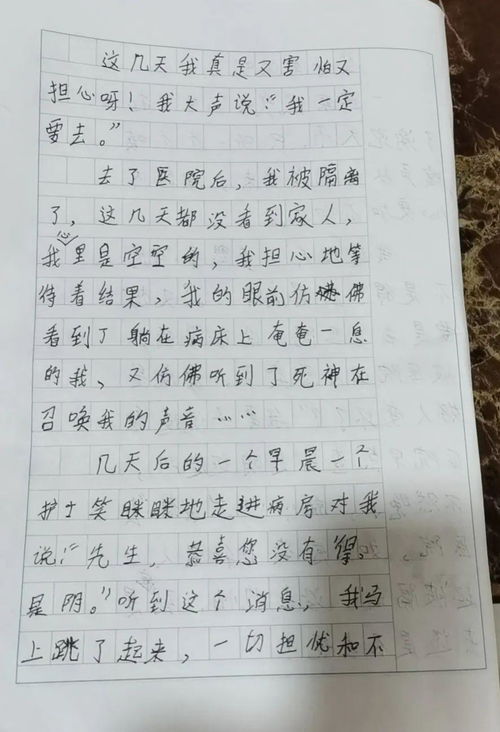 这几天我真是又害怕又
担心呀！我大声说：“我一定
要去。”
去了医院后，我被隔离
了，这几天都没看到家人，
我心里是空空的，我担心地等
待着结果，我的眼前仿佛
看到了躺在病床上奄奄一息
的我，又仿佛听到了死神在
召唤我的声音……
几天后的一个早晨一个
护士笑眯眯地走进病房对我
说：“先生，恭喜您没有得，
是阴。”听到这个消息，我马
上跳了起来，一切担忧和不